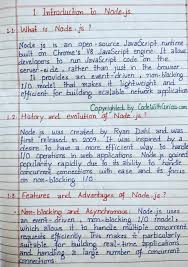 1. Introduction to Node.js
1.1 What is Node.js ?
Node.js is an open-source JavaScript runtime
built on Chrome's V8 JavaScript engine. It allow
developers to run JavaScript code on the
server-side, rather than just in the browser.
It provides an event-driven, non-blocking
I/O model that makes it lightweight and
efficient for building scalable network application
Copyrighted by CodeWithCurious.com
1.2 History and evolution of Node.js ?
Node.js was created by Ryan Dahl and was
first released in 2009. It was inspired by a
desire to have a more efficient way to handle
I/O operations in web applications. Node.js gained
popularity rapidly due to its ability to handle
concurrent connections with ease and its focus
on non-blocking I/O.
1.3 Features and Advantages of Node.js
Non-blocking and Asynchronous: Node.js uses
an event-driven, non-blocking I/O model,
which allows it to handle multiple concurrent
requests efficiently. This makes it particularly
suitable for building real-time applications
and handling a large number of
connections.